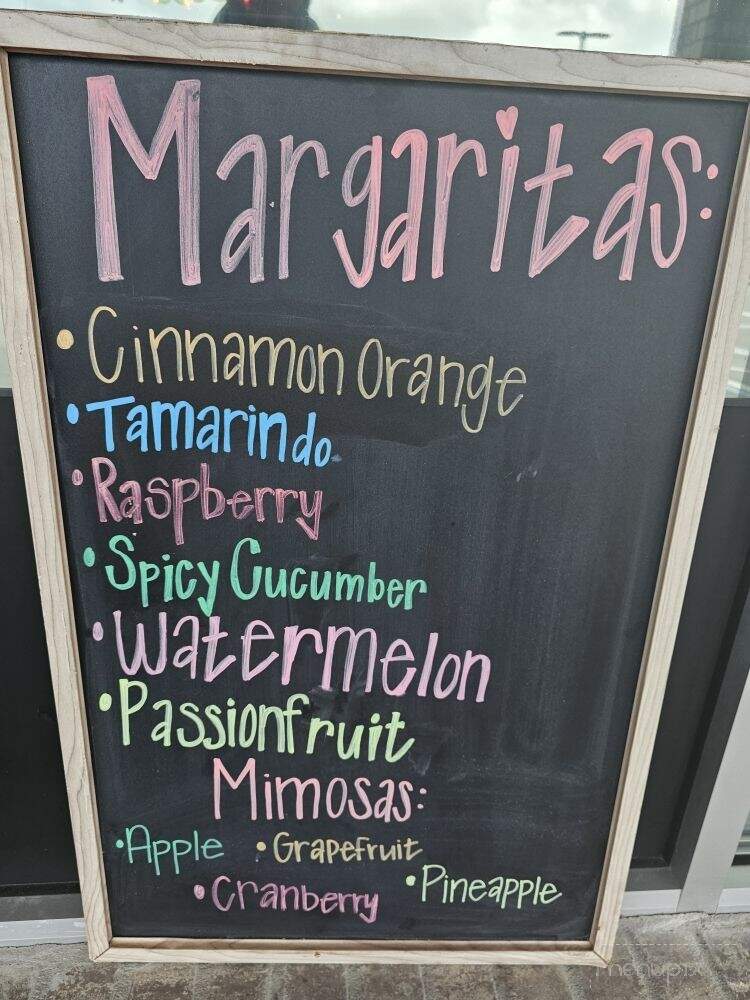 Margaritas:
• Cinnamon Orange
• Tamarindo
• Raspberry
• Spicy Cucumber
• Watermelon
• Passionfruit
Mimosas:
• Apple • Grapefruit
• Cranberry • Pineapple
menupix